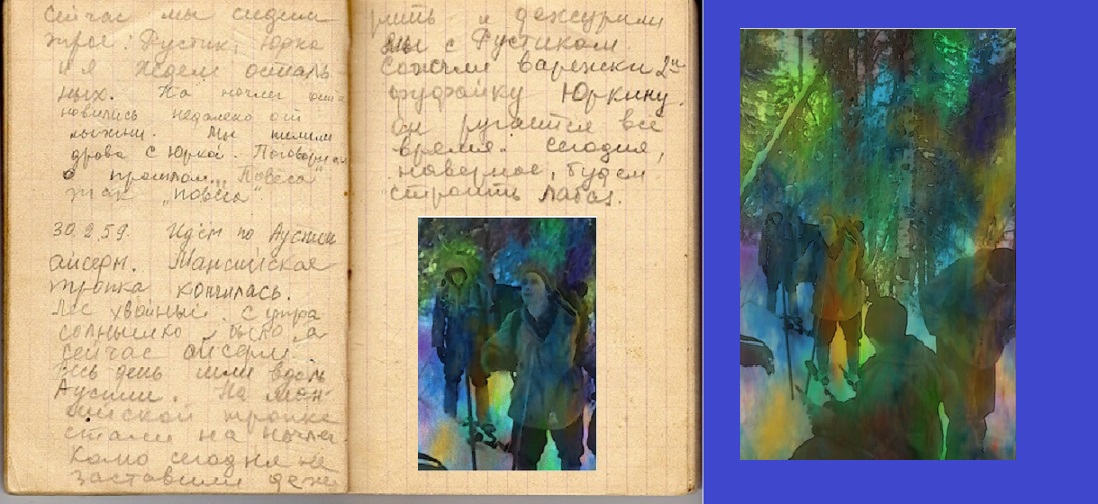 Сейчас мы сидим
трое: Рустик, Юрка
и я ждем осталь
ных. На ночлег оста
новились недалеко от
лыжни. Мы пилим
дрова с Юркой. Поговорили
о прошлом. "Повеса"
так "повеса".
30.2.59. Идём по Ауспии
Мансийская
тропка кончилась.
Лес хвойный. С утра
солнышко было, а
сейчас
Весь день шли вдоль
Ауспии. На ман
сийской тропке
стали на ночлег.
сегодня не
заставили деже
рить и дежурили
мы с Рустиком.
Сожгли варежки 2ую
фуфайку Юркину.
Он ругается все
время. Сегодня,
наверное, будем
строить лабаз.